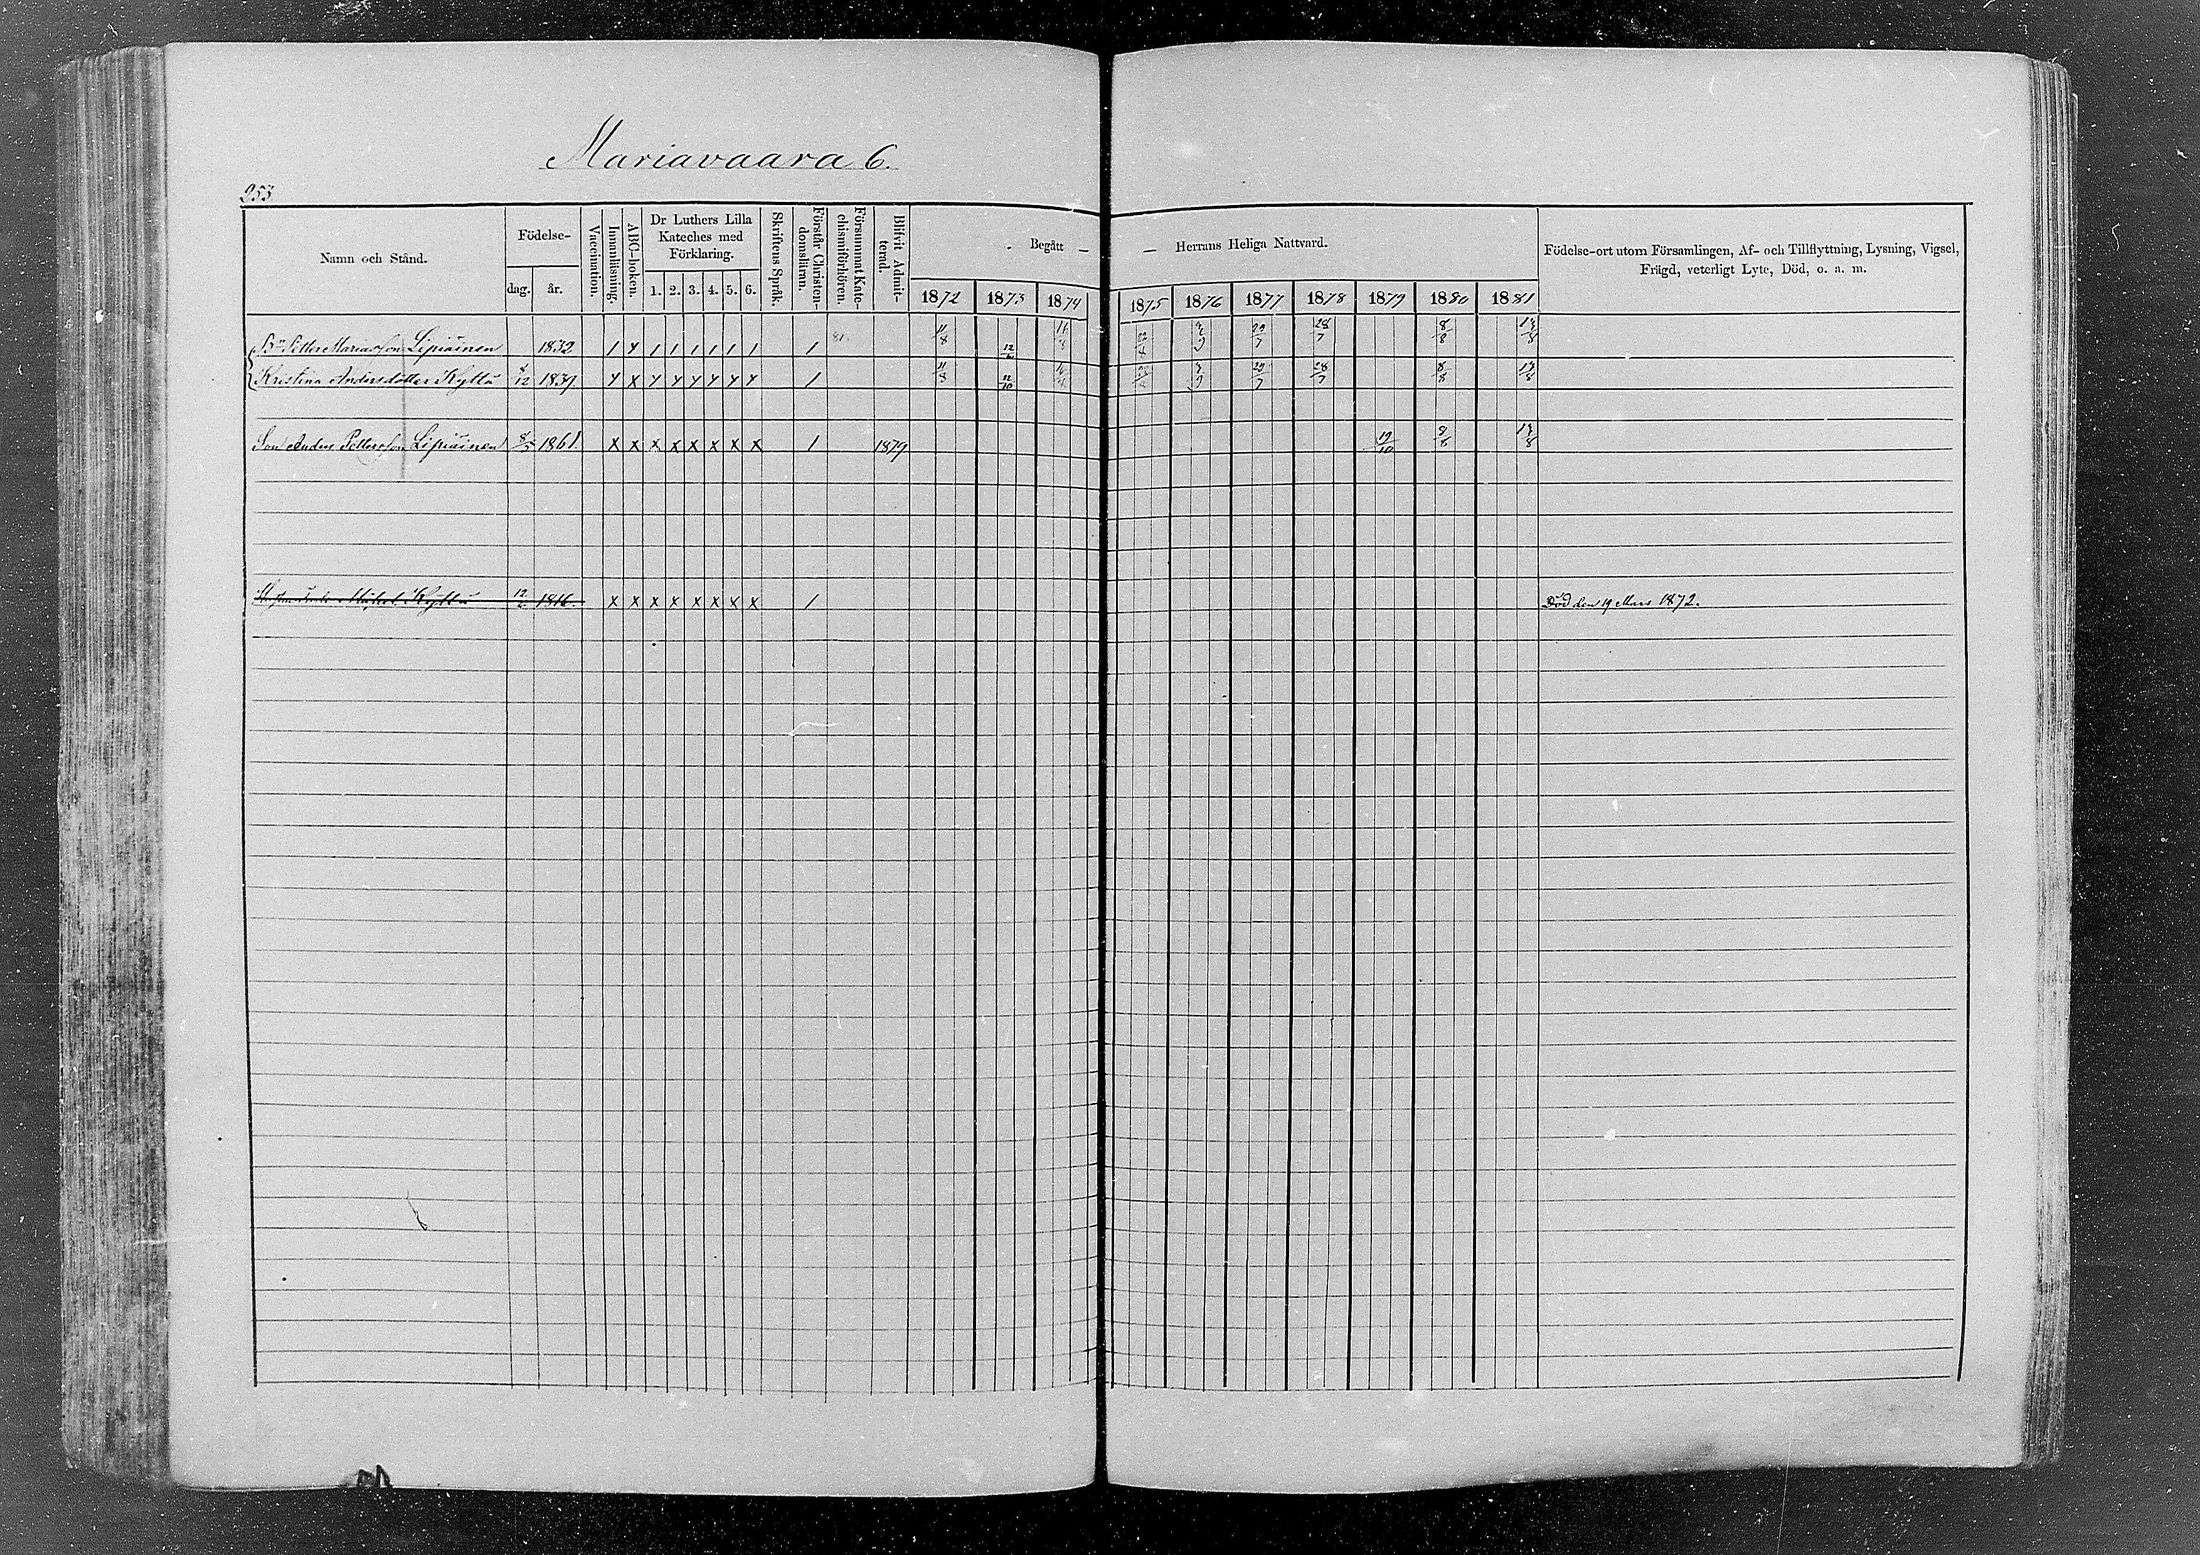 Mariavaara 6.
353
Namn och Stånd.
Födelse-
dag.
år.
Vaccination.
Innanläsning.
ABC-boken.
Dr Luthers Lilla
Kateches med
Förklaring.
1. 2. 3. 4. 5. 6.
Skriftens Språk.
Förstår Christen-
domsläran.
Försummat Kate-
chismiförhören.
Blifvit Admit-
terad.
Begått —
— Herrans Heliga Nattvard.
1872 1873 1874 1875 1876 1877 1878 1879 1880 1881
Födelse-ort utom Församlingen, Af- och Tillflyttning, Lysning, Vigsel,
Frägd, veterligt Lyte, Död, o. a. m.
Petter Mariasson Lipiäinen 1832 / Y / / / / / / / 81. 11/8 29/7 28/7 8/8
Kristina Andersdotter Kyllö 1839 Y X Y Y Y Y Y Y / 11/8 12/10 29/7 28/7 8/8
Son Anders Pettersson Lipiäinen 1861. X X X X X X X X / 1879 19/10
Mikel Kyllö 1816. X X X X X X X X / Död den 19 Mars 1872.